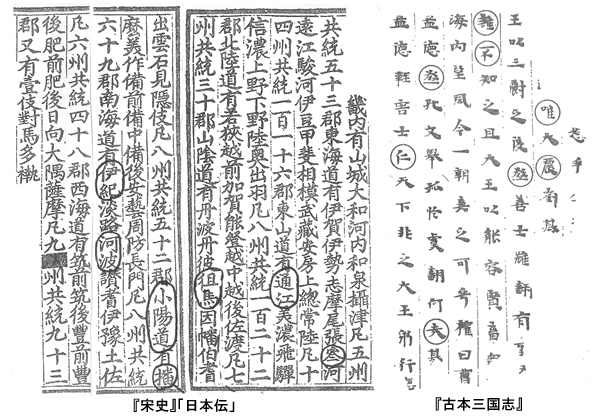 唯大農劉基
王以三爵之後殺善士雖翻有
雖不知之且大王以能容賢畜
海内望風今一朝棄之可乎權曰曹
孟德殺孔文舉孤於虞翻何矣其
孟德輕害士仁天下非之大王躬行
畿内有山城大和河内和泉攝津凡五州
共統五十三郡東海道有伊賀伊勢志摩尾張叁河
遠江駿河伊豆甲斐相模武藏安房上總常陸凡十
四州共統一百一十六郡東山道有通江美濃飛驒
信濃上野下野陸奥出羽凡八州共統一百二十二
郡北陸道有若狹越前加賀能登越中越後佐渡凡七
州共統三十郡山陰道有丹波丹彼徂馬因幡伯耆
出雲石見隱伎凡八州共統五十二郡小陽道有播
麽美作備前備中備後安藝周防長門凡八州共統
六十九郡南海道有伊紀淡路河波讚耆伊豫土佐
凡六州共統四十八郡西海道有筑前筑後豐前豐
後肥前肥後日向大隅薩摩凡九州共統九十三
郡又有壹伎對馬多
『宋史』「日本伝」
『古本三国志』